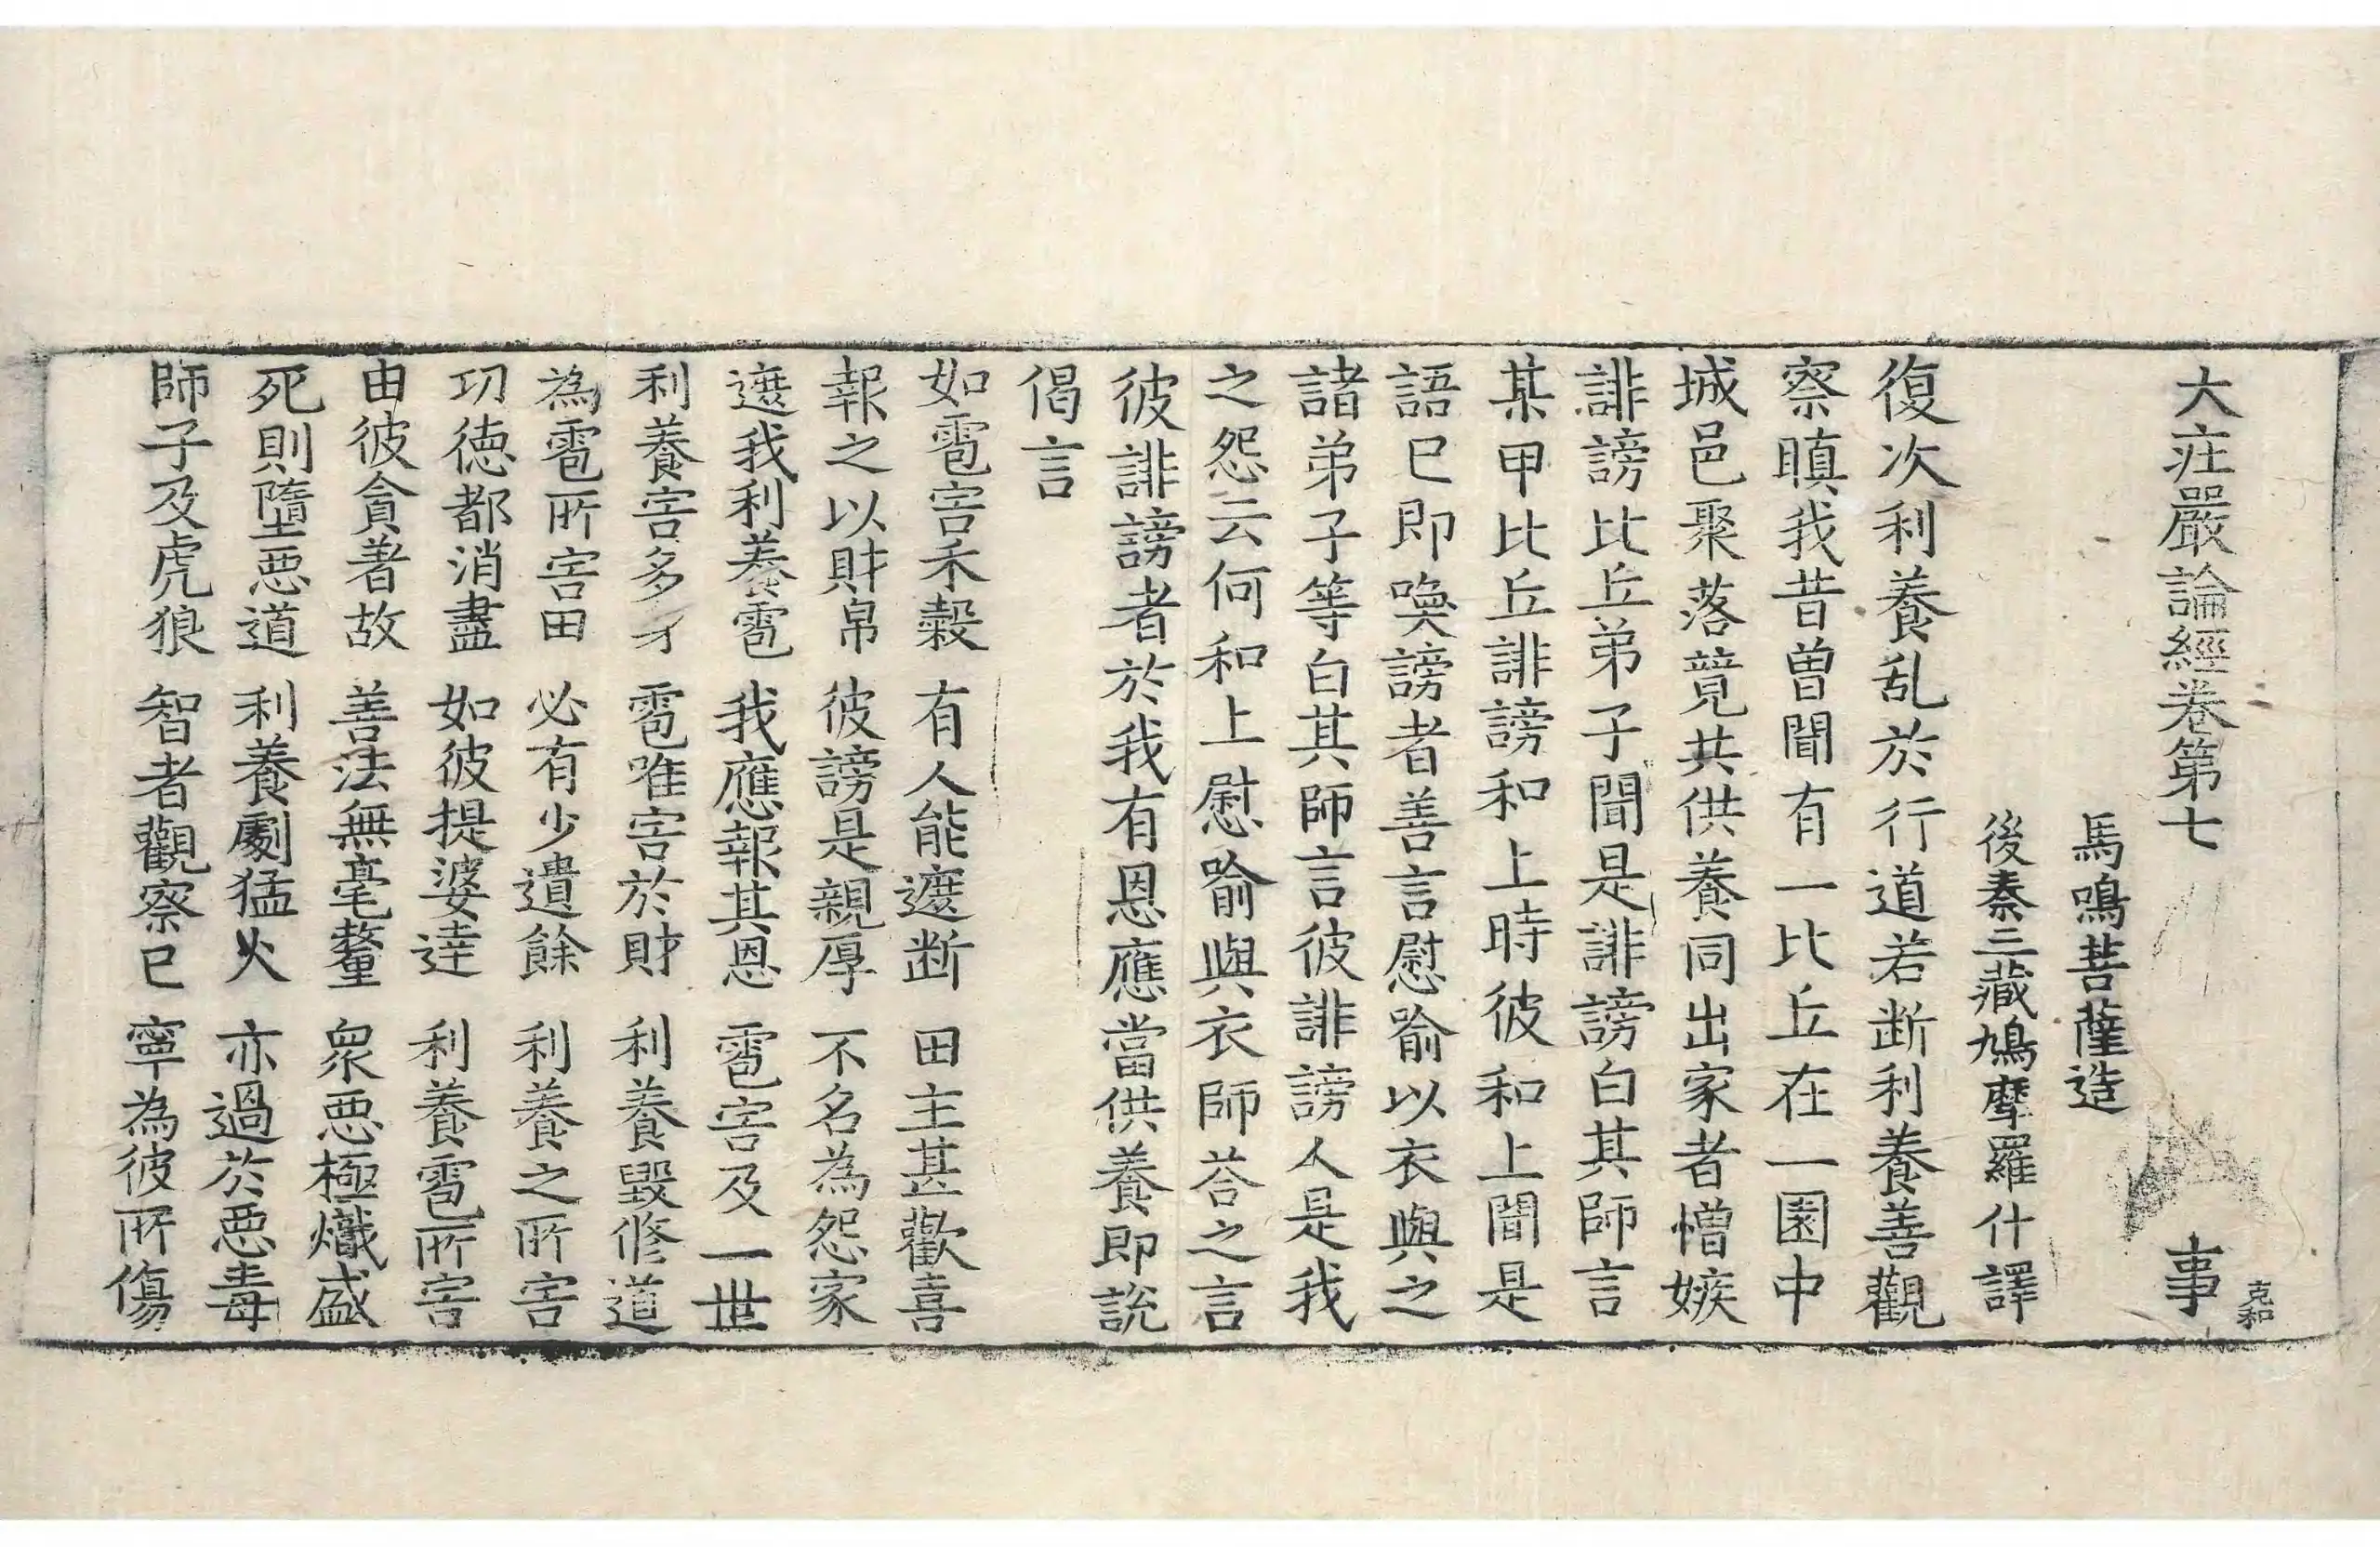 大庄嚴論經卷第七 事 克和
馬鳴菩薩造
後秦三藏鳩摩羅什譯
復次利養乱於行道若断利養善觀
察瞋我昔曽聞有一比丘在一園中
城邑聚落競共供養同出家者憎嫉
誹謗比丘弟子聞是誹謗白其師言
某甲比丘誹謗和上時彼和上聞是
語已即喚謗者善言慰喻以衣與之
諸弟子等白其師言彼誹謗人是我
之怨云何和上慰喻與衣師荅之言
彼誹謗者於我有恩應當供養即說
偈言
如雹害禾穀 有人能遮断 田主甚歡喜
報之以財帛 彼謗是親厚 不名為怨家
遮我利養雹 我應報其恩 雹害及一世
利養害多才 雹唯害於財 利養毀修道
為雹所害田 必有少遺餘 利養之所害
功德都消盡 如彼提婆達 利養雹所害
由彼貪著故 善法無毫釐 衆惡極熾盛
死則墮惡道 利養劇猛火 亦過於惡毒
師子及虎狼 智者觀察已 寧為彼所傷